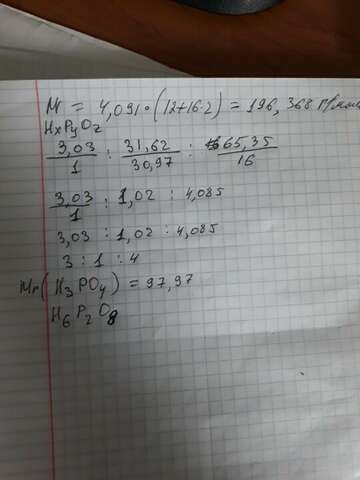 M = 4,091 • (12+16·2) = 196,368 г/моль
HxPyOz
3,03/1 : 31,62/30,97 : 65,35/16
3,03/1 : 1,02 : 4,085
3,03 : 1,02 : 4,085
3 : 1 : 4
Mr(H₃PO₄) = 97,97
H₆P₂O₈